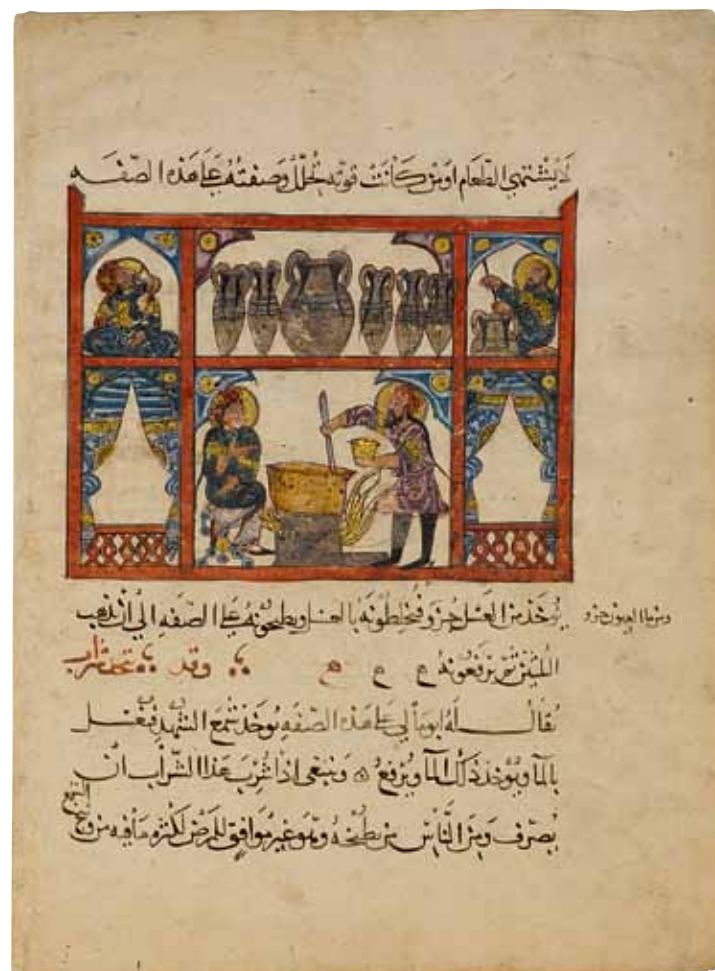 لا يشتهي الطعام او من كانت قوته تحلل وصفته على هذه الصفه
يؤخذ من العسل جزو فيخلطونه بالعسل ويطبخونه على الصفه الي ان يذهب
ومن ما العيون جزو
ثم يرفعونه وقد شراب
يقال له ابومالي على هذه الصفه يوخذ شمع الشهد فيغسل
بالما ويؤخذ ذلك الما ويرفع وينبغي اذا شرب هذا الشراب ان
يصرف ومن الناس من يطبخه وهو غير موافق للمرض لكثره ما فيه من وسخ
الشمع